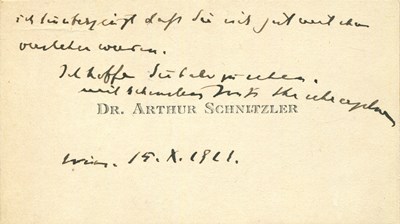 ich überzeugt daß Sie sich gut mit ihm
verstehen werden.
Ich hoffe Sie bald zu sehen.
mit schönstem Gruß Ihr
DR. ARTHUR SCHNITZLER
Wien. 15. X. 1921.